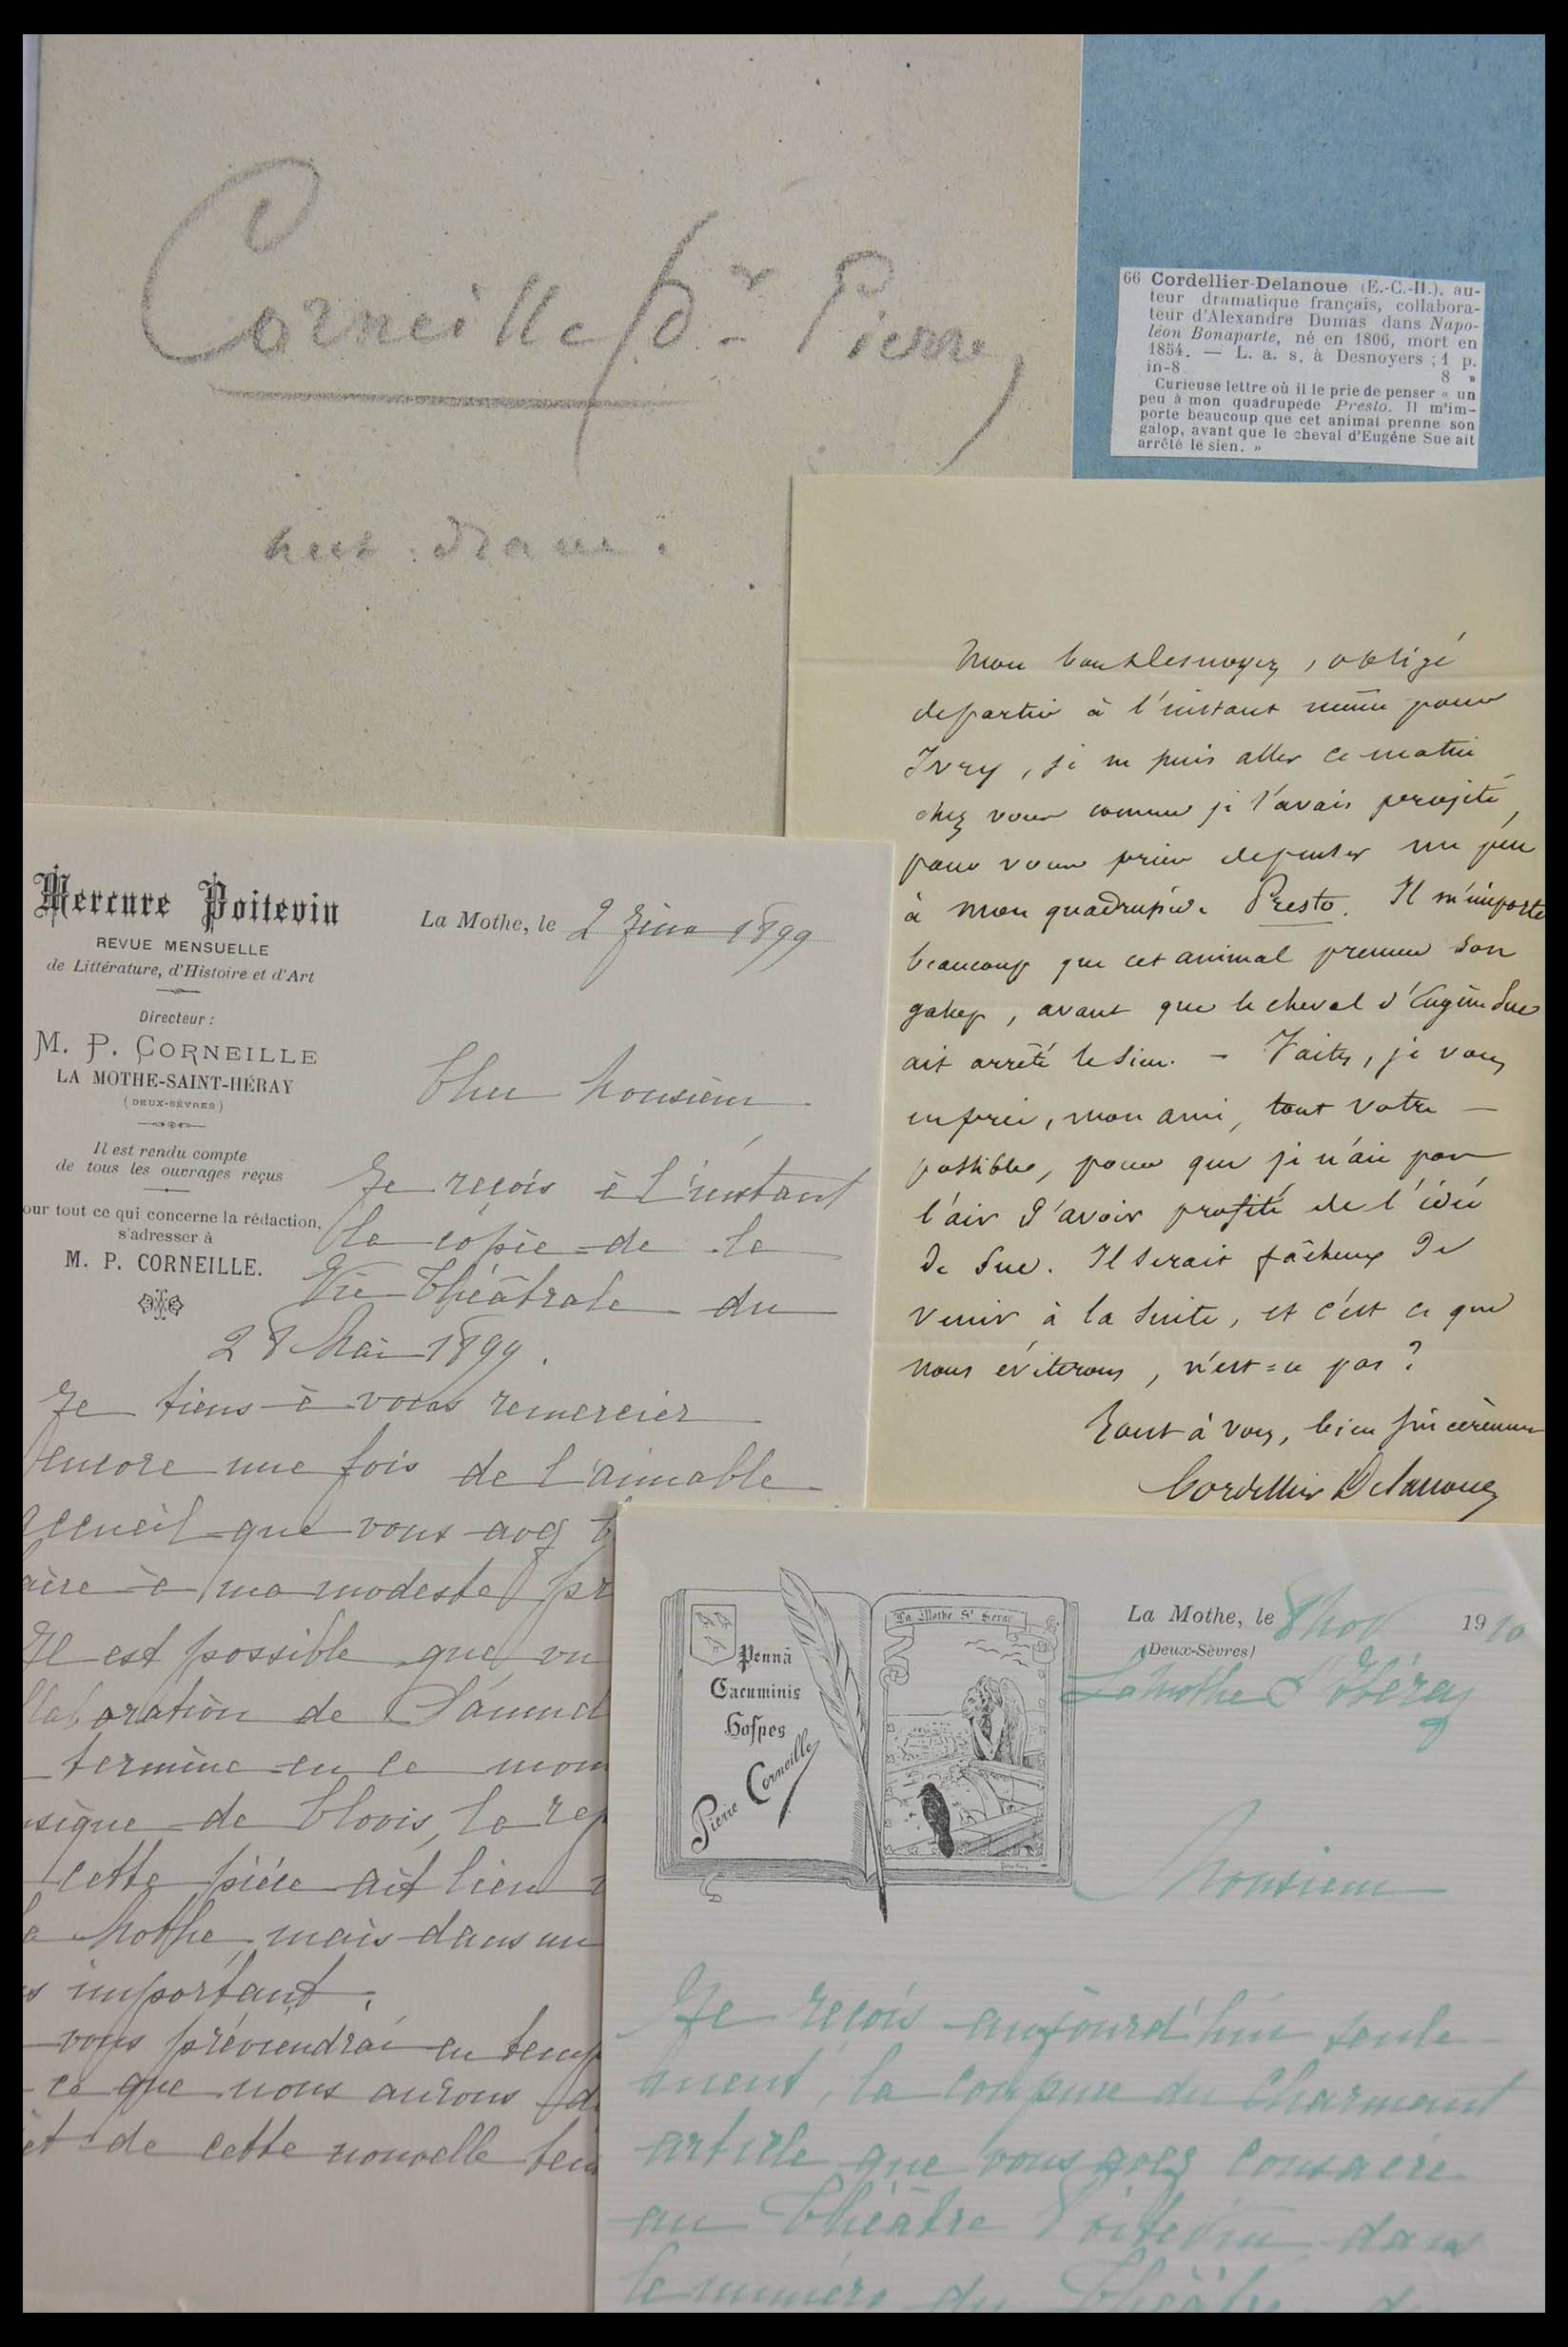 Corneille, Dr Pierre,
aut. dram.
66 Cordellier-Delanoue (E.-C.-H.), au-
teur dramatique français, collabora-
teur d'Alexandre Dumas dans Napo-
léon Bonaparte, né en 1806, mort en
1854. — L. a. s. à Desnoyers ; 1 p.
in-8 8 »
Curieuse lettre où il le prie de penser « un
peu à mon quadrupède Presto. Il m'im-
porte beaucoup que cet animal prenne son
galop, avant que le cheval d'Eugène Sue ait
arrêté le sien. »
Mon bon Desnoyers, obligé
de partir à l'instant même pour
Ivry, je ne puis aller ce matin
chez vous comme je l'avais projeté,
pour vous prier de penser un peu
à mon quadrupède Presto. Il m'importe
beaucoup que cet animal prenne son
galop, avant que le cheval d'Eugène Sue
ait arrêté le sien. — Faites, je vous
en prie, mon ami, tout votre —
possible, pour que je n'aie pas
l'air d'avoir profité de l'idée
de Sue. Il serait fâcheux de
venir à la suite, et c'est ce que
nous éviterons, n'est=ce pas ?
Tout à vous, bien sincèrement
Cordellier Delanoue
Mercure Poitevin
REVUE MENSUELLE
de Littérature, d'Histoire et d'Art
Directeur :
M. P. CORNEILLE
LA MOTHE-SAINT-HÉRAY
(DEUX-SÈVRES)
Il est rendu compte
de tous les ouvrages reçus
our tout ce qui concerne la rédaction,
s'adresser à
M. P. CORNEILLE.
La Mothe, le 2 Juin 1899
Cher Monsieur
Je reçois à l'instant
la copie de la
Vie Théâtrale du
28 Mai 1899.
Je tiens à vous remercier
encore une fois de l'aimable
accueil que vous avez
aire à ma modeste pr
Il est possible que
llaboration de Samuel
termine en ce mom
usique de Clovis, la rep
cette pièce ait lieu
a Mothe mais dans un
s important.
vous préviendrai en temp
ce que nous aurons d
et de cette nouvelle ten
La Mothe St Heray
Pennâ
Cacuminis
Hospes
Pierre Corneille
La Mothe, le 8 Nov 1910
(Deux-Sèvres)
La Mothe St Héray
Monsieur
Je reçois aujourd'hui seule-
ment, la coupure du charmant
article que vous avez consacré
au Théâtre Poitevin dans
le numéro du Théâtre